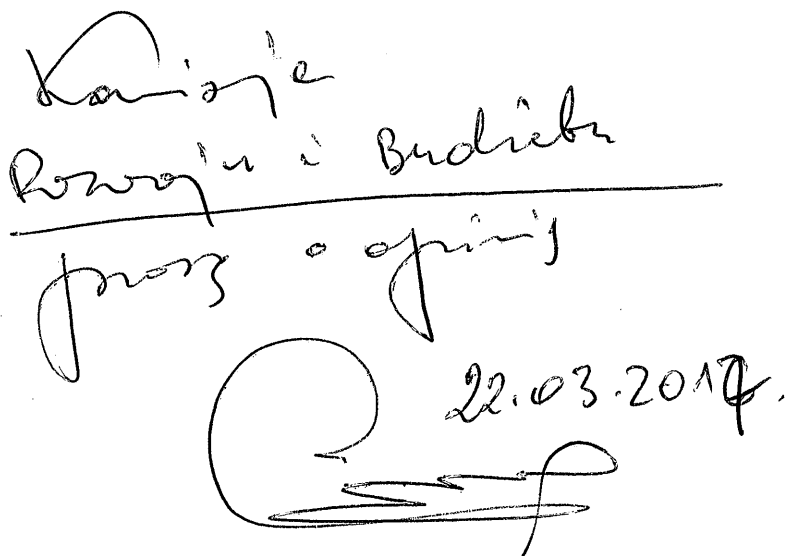 Komisja
Rozwoju i Budżetu
proszę o opinię
22.03.2017.